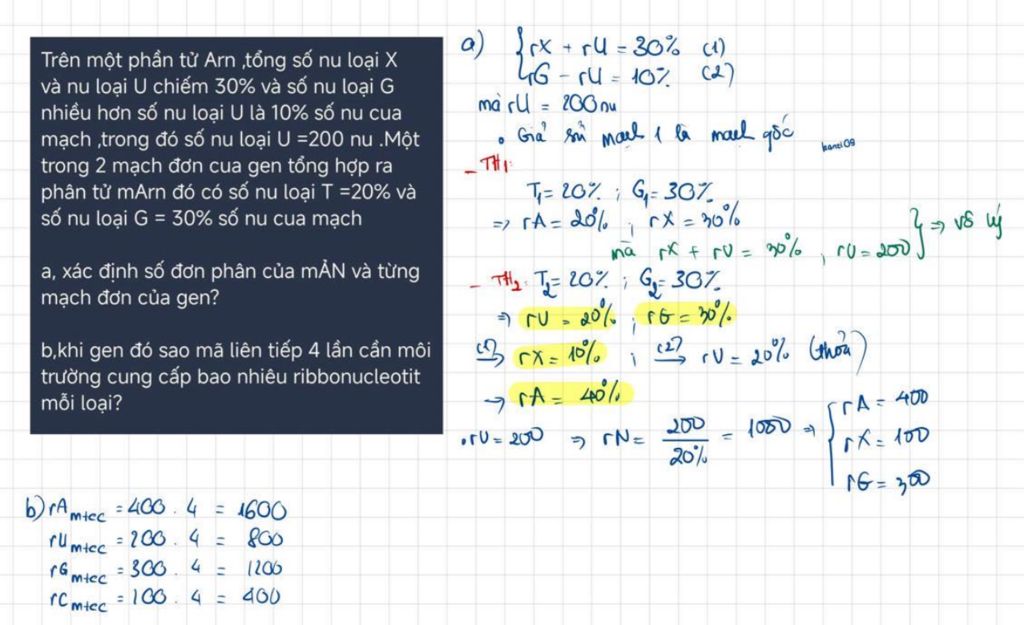 Trên một phần tử Arn ,tổng số nu loại X
và nu loại U chiếm 30% và số nu loại G
nhiều hơn số nu loại U là 10% số nu cua
mạch ,trong đó số nu loại U =200 nu .Một
trong 2 mạch đơn cua gen tổng hợp ra
phân tử mArn đó có số nu loại T =20% và
số nu loại G = 30% số nu cua mạch
a, xác định số đơn phân của mẢN và từng
mạch đơn của gen?
b,khi gen đó sao mã liên tiếp 4 lần cần môi
trường cung cấp bao nhiêu ribbonucleotit
mỗi loại?
a) { rX + rU = 30% (1)
rG - rU = 10% (2)
mà rU = 200 nu
• Giả sử mạch 1 là mạch gốc
kanzi09
- TH1:
T1 = 20% ; G1 = 30%
=> rA = 20% ; rX = 30%
mà rX + rU = 30% , rU = 200 } => vô lý
- TH2: T2 = 20% ; G2 = 30%
=> rU = 20% ; rG = 30%
(1) => rX = 10% ; (2) -> rU = 20% (thỏa)
-> rA = 40%
. rU = 200 => rN = 200 / 20% = 1000 => { rA = 400
rX = 100
rG = 300
b) rA mtcc = 400 . 4 = 1600
rU mtcc = 200 . 4 = 800
rG mtcc = 300 . 4 = 1200
rC mtcc = 100 . 4 = 400